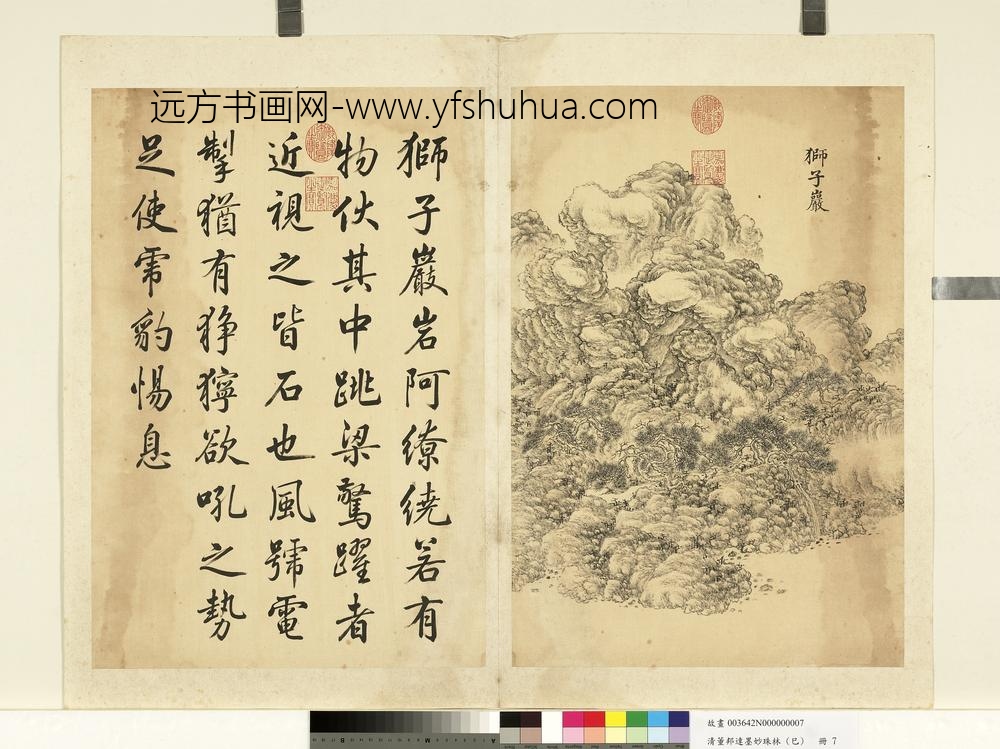 远方书画网-www.yfshuhua.com
獅子巖
獅子巖岩阿繚繞若有
物伏其中跳梁驚躍者
近視之皆石也風號電
掣猶有狰獰欲吼之勢
足使常豹惕息
故畫 003642N000000007
清董邦達墨妙珠林(巳) 冊 7